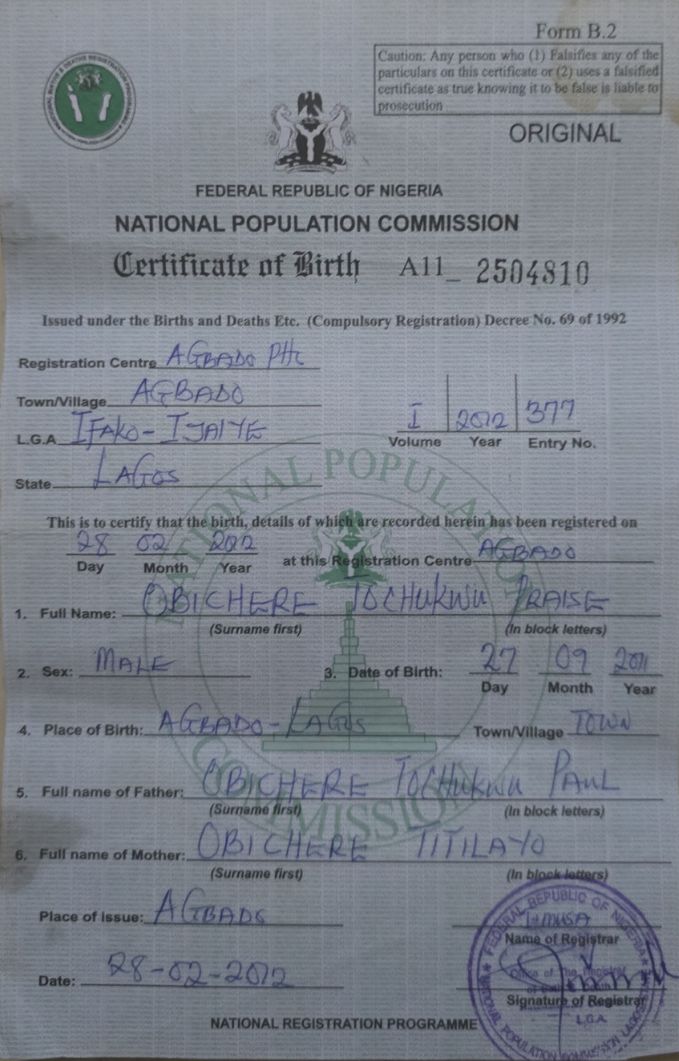 Form B.2
Caution: Any person who (1) Falsifies any of the
particulars on this certificate or (2) uses a falsified
certificate as true knowing it to be false is liable to
prosecution
ORIGINAL
FEDERAL REPUBLIC OF NIGERIA
NATIONAL POPULATION COMMISSION
Certificate of Birth A11_ 2504810
Issued under the Births and Deaths Etc. (Compulsory Registration) Decree No. 69 of 1992
Registration Centre AGBADO PHC
Town/Village AGBADO
L.G.A IFAKO-IJAIYE
I 2012 377
Volume Year Entry No.
State LAGOS
This is to certify that the birth, details of which are recorded herein has been registered on
28 02 2012 at this Registration Centre AGBADO
Day Month Year
1. Full Name: OBICHERE TOCHUKWU PRAISE
(Surname first) (In block letters)
2. Sex: MALE 3. Date of Birth: 27 09 2011
Day Month Year
4. Place of Birth: AGBADO-LAGOS Town/Village TOWN
5. Full name of Father: OBICHERE TOCHUKWU PAUL
(Surname first) (In block letters)
6. Full name of Mother: OBICHERE TITILAYO
(Surname first) (In block letters)
Place of Issue: AGBADO
MUSA
Name of Registrar
Date: 28-02-2012
Signature of Registrar
L.G.A.
NATIONAL REGISTRATION PROGRAMME
FEDERAL REPUBLIC OF NIGERIA
NATIONAL POPULATION COMMISSION